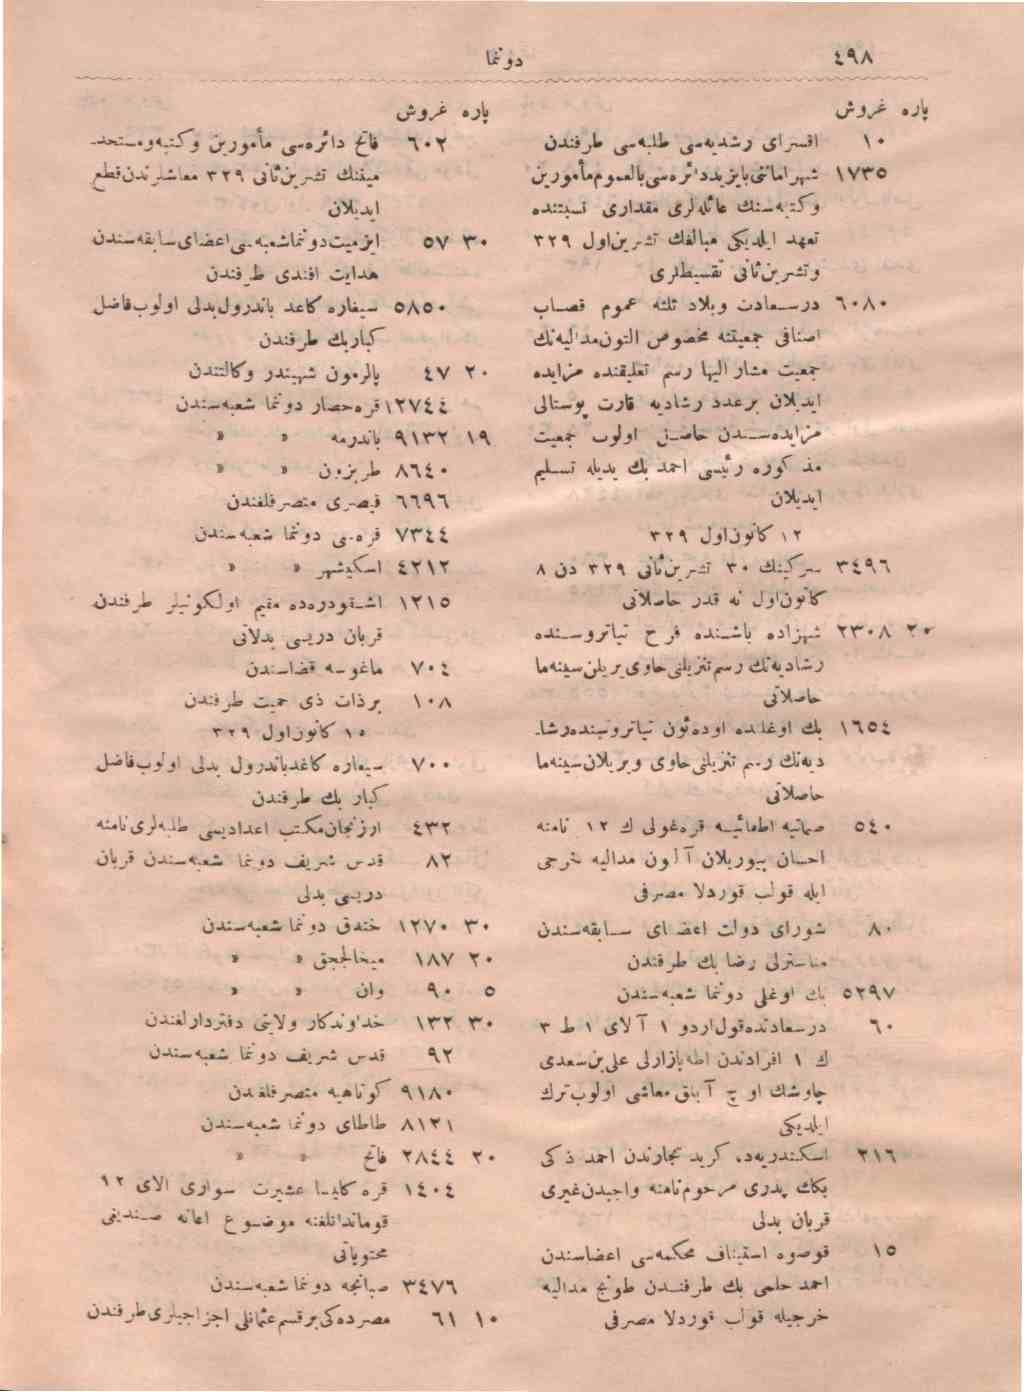 ٤٩٨
دونما
پاره غروش
١٠ اقسرای رشدیه‌سی طلبه‌سی طرفندن
١٧٣٥ شهرامانتی بایزیددائره‌سی بالعموم مأمورین
وکتبه‌سنك عائله‌لری مقداری نسبتنده
تعهد ایلدیکی مبالغك تشرین‌اول ٣٢٩
وتشرین‌ثانی تقسیطلری
٦٠٨٠ درسعادت وبلاد ثلثه عموم قصاب
اصنافی جمعیتنه مخصوص التون‌مدالیه‌نك
جمعیت مشار الیها رسم تعلیقنده مزایده
ایدیلان برعدد رشادیه قارت پوستالی
مزایده‌سندن حاصل اولوب جمعیت
مذکوره رئیسی احمد بك یدیله تسلیم
ایدیلان
١٢ کانون‌اول ٣٢٩
٣٤٩٦ سرکینك ٣٠ تشرین‌ثانی ٣٢٩ دن ٨
کانون‌اول نه قدر حاصلاتی
٢٠ ٢٣٠٨ شهزاده باشنده فرح تیاتروسنده
رشادیه‌نك رسم تنزیلنی حاوی بریلن‌سینه‌ما
حاصلاتی
١٦٥٤ بك اوغلنده اوده‌ئون تیاتروسنده‌رشا-
دیه‌نك رسم تنزیلنی حاوی ویریلان‌سینه‌ما
حاصلاتی
٥٤٠ صمانیه اطفائیه قره‌غولی ك ١٢ نامنه
احسان بیوریلان آلتون مدالیه خرجی
ایله قولپ قوردلا مصرفی
٨٠ شورای دولت اعضای سابقه‌سندن
مناسترلی رضا بك طرفندن
٥٢٩٧ بك اوغلی دونما شعبه‌سندن
٦٠ درسعادتده‌قول‌اردو ١ آلای ١ ط ٣
ك ١ افرادندن اطه‌بازارلی علی‌بن‌سعدی
چاوشك اوچ آیلق معاشی اولوب ترك
ایلدیکی
٢١٦ اسکندریه‌ده کرید تجارندن احمد ذکی
بکك پدری مرحوم نامنه واجبدن‌غیری
قربان بدلی
١٥ قوصوه استیناف محکمه‌سی اعضاسندن
احمد حلمی بك طرفندن طونج مدالیه
خرجیله قولپ قوردلا مصرفی
پاره غروش
٦٠٢ فاتح دائره‌سی مأمورین وکتبه‌ومستخد-
میننك تشرین‌ثانی ٣٢٩ معاشلرندن‌قطع
ایدیلان
٣٠ ٥٧ ازمیت‌دونماشعبه‌سی‌اعضای‌سابقه‌سندن
هدایت افندی طرفندن
٥٨٥٠ سیغاره کاغد باندرول‌بدلی اولوب‌فاضل
کباربك طرفندن
٢٠ ٤٧ پالرمون شهبندر وکالتندن
١٢٧٤٤ قره‌حصار دونما شعبه‌سندن
١٩ ٩١٣٢ باندرمه » »
٨٦٤٠ طربزون » »
٦٦٩٦ قیصری متصرفلغندن
٧٣٤٤ قره‌سی دونما شعبه‌سندن
٤٢١٢ اسکیشهر » »
١٢١٥ اشقودره‌ده مقیم اولکونیلر طرفندن
قربان دریسی بدلاتی
٧٠٤ ماغوسه قضاسندن
١٠٨ برذات ذی حمیت طرفندن
١٥ کانون‌اول ٣٢٩
٧٠٠ سیغاره کاغدباندرول بدلی اولوب‌فاضل
کبار بك طرفندن
٤٣٢ ارزنجان‌مکتب اعدادیسی طلبه‌لری‌نامنه
٨٢ قدس شریف دونما شعبه‌سندن قربان
دریسی بدلی
٣٠ ١٢٧٠ خندق دونما شعبه‌سندن
٢٠ ١٨٧ میخالجق » »
٥ ٩٠ وان » »
٣٠ ١٣٢ خداوندکار ولایتی دفتردارلغندن
٩٢ قدس شریف دونما شعبه‌سندن
٩١٨٠ کوتاهیه متصرفلغندن
٨١٢١ طاطای دونما شعبه‌سندن
٢٠ ٢٨٤٤ فاتح » »
١٤٠٤ قره کلیسا عشیرت سواری الای ١٢
قوماندانلغنه موضوع اعانه صندیغی
محتویاتی
٣٤٧٦ صبانجه دونما شعبه‌سندن
١٠ ٦١ مصرده‌کی‌برقسم‌عثمانلی اجزاجیلری‌طرفندن